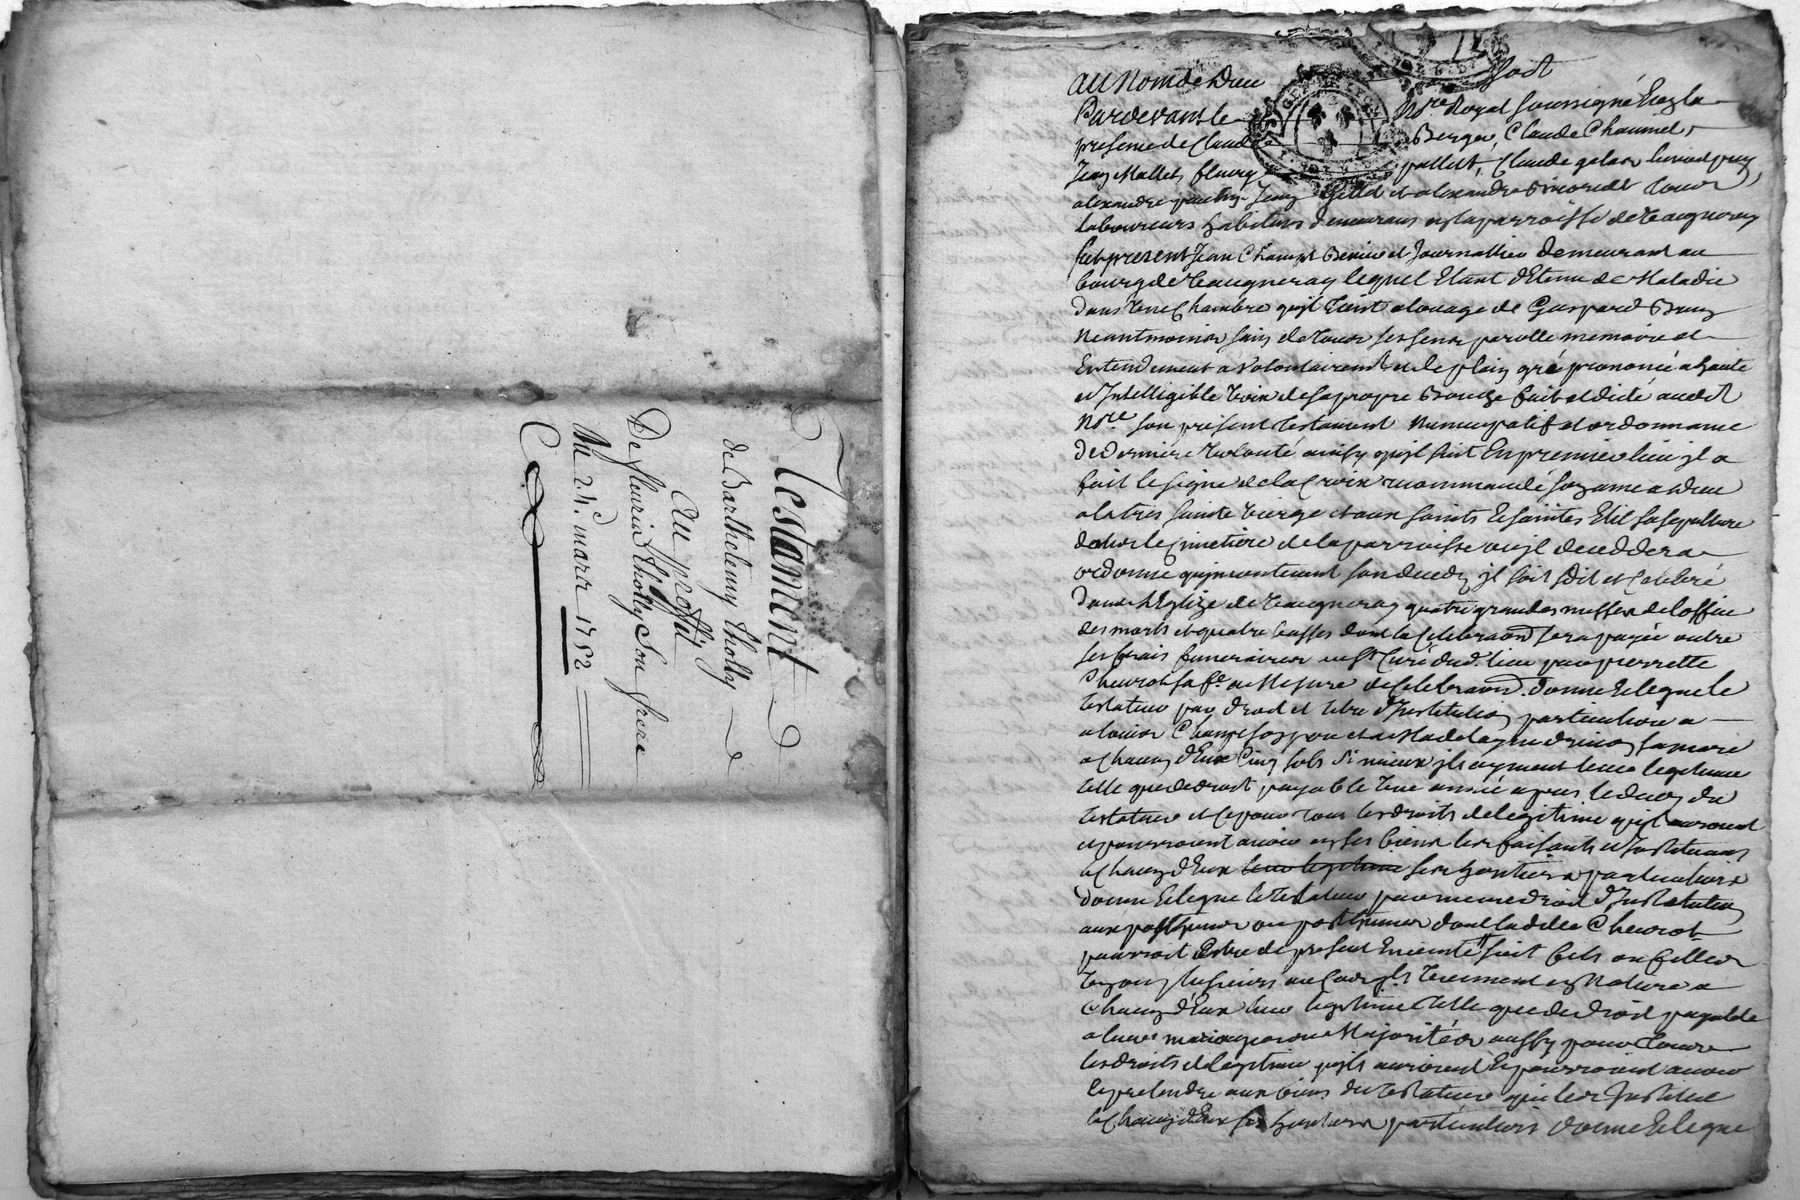 Testament
de Barthelemy tholly
Au proffit
De fleurin tholly Son frere
Du 24e. mars 1752
Au Nom de Dieu Soit
Pardevant le Nre. Royal Soussigné En la
presence de Claude Berger, Claude Chaumel,
Jean Mallet, fleury pallet, Claude
alexandre Jean Gillet et alexandre tous
Laboureurs habitans demeurans en la parroisse de Vaugneray
fut present Jean Champt Journallier demeurant au
bourg de Vaugneray lequel Etant detenu de Maladie
dans Une Chambre qu'il tient a louage de Gaspard
Neantmoins sain de tous ses sens parolle memoire et
Entendement a Volontairemt. et de plein gré prononcé a haute
et Intelligible voix de sa propre Bouche fait et dicté audit
Nre. son present testament Nuncupatif et ordonnance
de derniere Volonté ainsy qu'il suit En premier lieu il a
fait le signe de la Croix recommandé son ame a Dieu
a la tres sainte Vierge et aux saints et saintes Elit sa sepulture
dans le Cimetiere de la parroisse ou il deceddera
ordonne qu'incontinent son deces il soit dit et Celebré
dans l'Eglize de Vaugneray quatre grandes messes de l'office
des morts et quatre basses dont la Celebraon sera payée outre
ses frais funeraires au sr. Curé dud. lieu par pierrette
Chevrot sa fe. a Mesure de Celebraon. Donne et legue le
testateur par droit et titre d'Institution particuliere a
a Champt son pere et a Madelayne sa mere
a Chacun d'Eux Cinq sols si mieux ils n'ayment leur legitime
telle que de droit payable Une année apres le deces du
testateur et Ce pour tous les droits de legitime qu'ils auroient
et pourroient avoir en ses biens les faisants et Instituants
et Chacun d'Eux leur legitime ses heritiers particuliers
Donne et legue le testateur par meme droit d'Institution
aux posthume ou posthumes dont ladite Chevrot
pourroit Estre de present Enceinte soit fils ou filles
Un ou plusieurs au Cas qu'ils Viennent en Nature a
Chacun d'Eux leur legitime telle que de droit payable
a leurs mariages ou Majorités aussy pour tous
les droits de legitime qu'ils auroient et pourroient avoir
et pretendre aux biens du testateur qui les Institue
et Chacun d'Eux ses heritiers particuliers Donne et legue